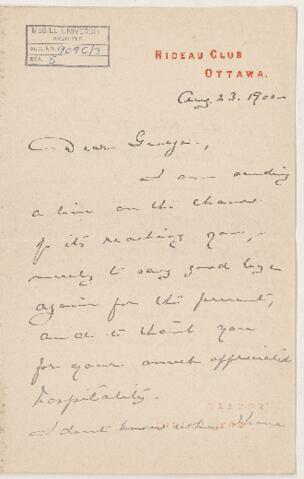 McGILL UNIVERSITY
ARCHIVES
ACC. NO. 909C/3
REF. 5
RIDEAU CLUB
OTTAWA.
Aug. 23. 1900
Dear George,
I am sending
a line on the chance
of its reaching you,
merely to say good bye
again for the present,
and to thank you
for your much appreciated
hospitality.
I dont know when I have